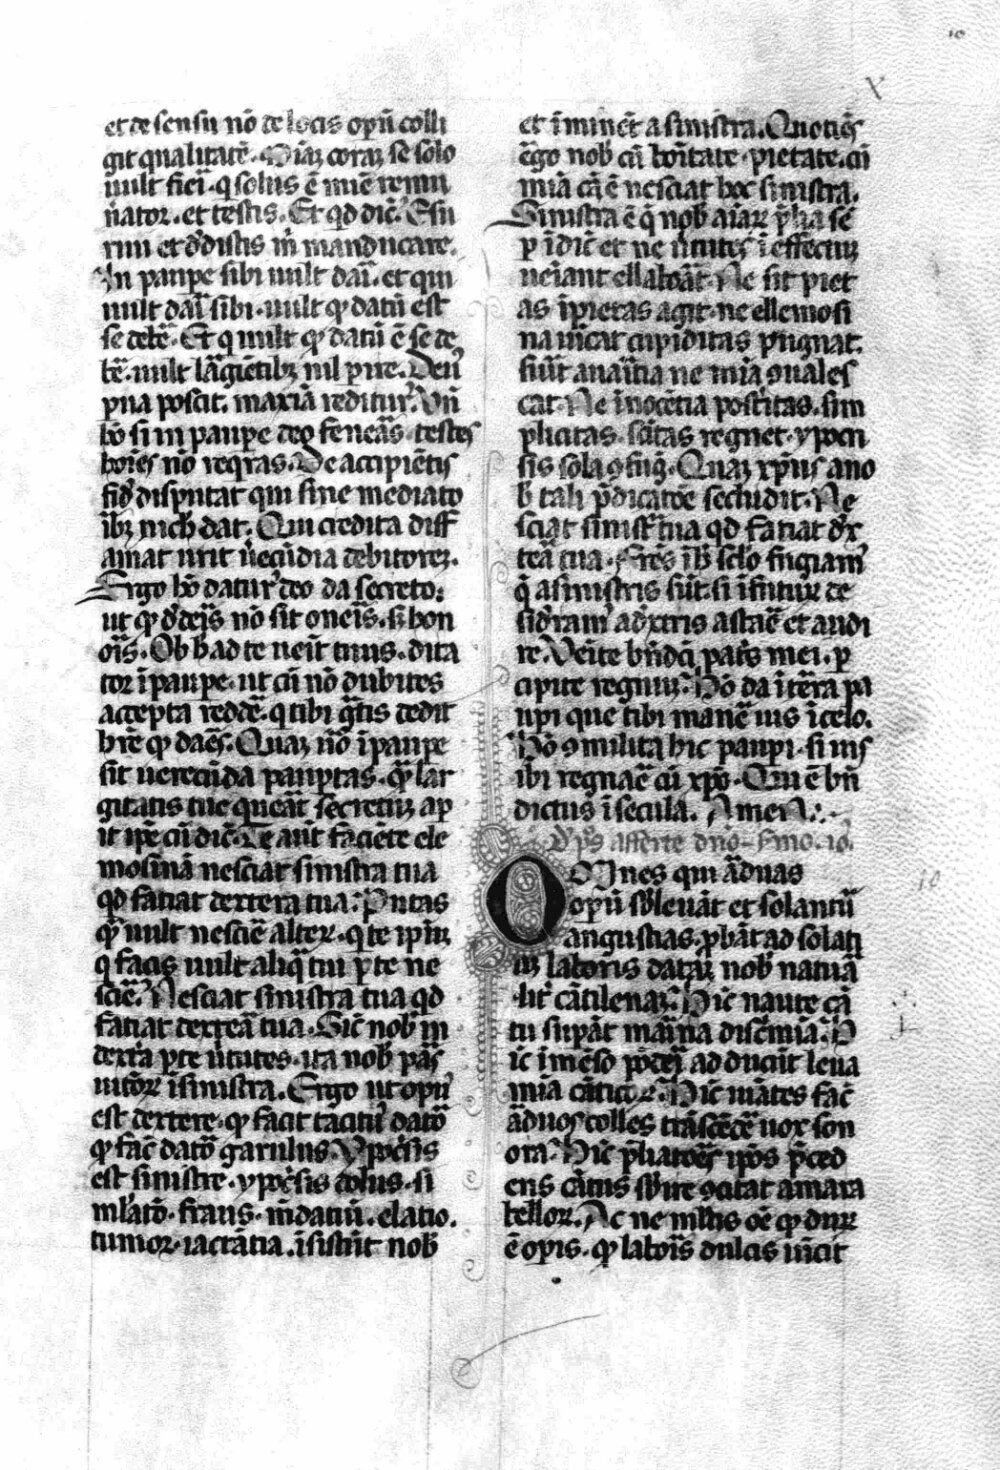 10
X
et de sensu nō de locis opū colli
git qualitatē. Hiāꝫ coraꝫ se solo
uult fieri. q solus ē miīe remu
ñator. et testis. Et qd dic̄. Esu
riui et d̄distis m̄ manducare.
In paupe sibi uult dari. et qui
uult dari sibi. uult qͥ datū est
se debē. Et q uult qͥ datū ē se de
bē. uult lāgiētibꝫ nil pire. Deus
pna poscit. maxīa redditur. Vn̄
hō si in paupe deo feneas testes
hoīes nō reqras. De accipiētis
fid̄ disputat qui sine mediato
ribꝫ nich̄ dat. Qui credita diff
amat urit uēcūdia debitoreꝫ.
Ergo hō datur deo da secreto.
ut qͥ d̄deris nō sit oneris. sꝫ hon
oris. Ob h ad te uēit tuus. dita
tor ī paupe. ut cū nō dubites
accepta reddē. q tibi gͣtis dedit
hr̄e qͥ daēs. Quaꝫ nō ī paupe
sit uerecūda paupertas. qͣ lar
gitatis tue queāt secretuꝫ ap
it ipē cū dic̄. Te aut faciete ele
mosinā nesciat sinistra tua
qd faciat dextera tua. Putas
qͥ uult nesciē alteꝝ. q te ipm̄
q facis uult aliq tui pte ne
sciē. Nesciat sinistra tua qd
faciat dextera tua. Sic nob̄ in
dextra pte uirtutes. ita nob̄ pās
uitioꝝ ī sinistra. Ergo ut opus
est dextere. qͥ facit tacitus dator
qͥ fac̄ dator garulus. Ypocrisis
est sinistre. ypocrisis dolus. si
mlatō. fraus. mēdatiū. elatio.
tumor. iactātia. īsistūt nob̄
et īminēt a sinistra. Quotiēs
ergo nob̄ cū boītate. pietate. cū
mīa cā ē nesciat hoc sinistra.
Sinistra ē q nob̄ aiaꝝ plia sē
p īdic̄ et ne uirtutes ī effectuꝫ
ueiant ellaborāt. Ne sit piet
as īpietas agit. ne ellemosi
na uicat cupiditas pugnat.
siuit auaritia ne mīa ꝯuales
cat. Ne īnocētia postitas. sim
plicitas. scītas regnet. ypocri
sis sola ꝯfīgit. Quaꝫ xp̄us ano
b̄ tali p̄dicatōe secludit. Ne
sciat sinistra tua qd faciat dex
terā tua. Frēs īb̄ sclo fugiam̄
q a sinistris sūt. si ī futuꝝ de
sid̄ram̄ a dextris astāe et audi
re. Veīte bn̄dci patris mei. p
cipite regnuꝫ. Hō da ī tēra pa
upi que tibi manē uis ī celo.
Hō ꝯmilita hic paupi. si uis
ibi regnaē cū xp̄o. Qui ē bn̄
dictus ī secula. Amen.
d' ps̄ afferte dn̄o. sermo. 10.
OMnes qui aduas
opū subleuāt et solantū
angustias. p̄bāt ad solati
uꝫ laboris dataꝫ nob̄ natuā
lit̄ cātilenaꝫ. Hic naute cā
tu supāt marina disc̄mīa. H
ic īmēso pōdeī ad ducit leua
mīa cāticoꝝ. Hic uiātes fac̄
arduos colles trāscēdē uox son
ora. Hic p̄liatōes ip̄os p̄ced
ens cātus subire ꝯcitat amara
belloꝝ. Ac ne mltis oē qͥ duꝝ
ē opis. qͥ laboris dulcis uīcit
10